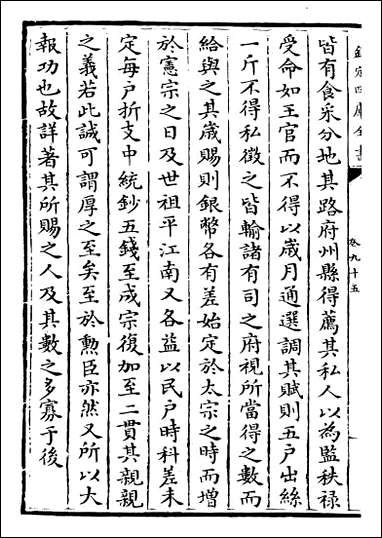 欽定四庫全書
卷九十五
皆有食采分地其路府州縣得薦其私人以為監秩祿
受命如王官而不得以歲月通選調其賦則五户出絲
一斤不得私徵之皆輸諸有司之府視所當得之數而
給與之其歲賜則銀幣各有差始定於太宗之時而增
於憲宗之日及世祖平江南又各益以民户時科差未
定每户折支中統鈔五錢至成宗復加至二貫其親親
之義若此誠可謂厚之至矣至於勲臣亦然又所以大
報功也故詳著其所賜之人及其數之多寡于後